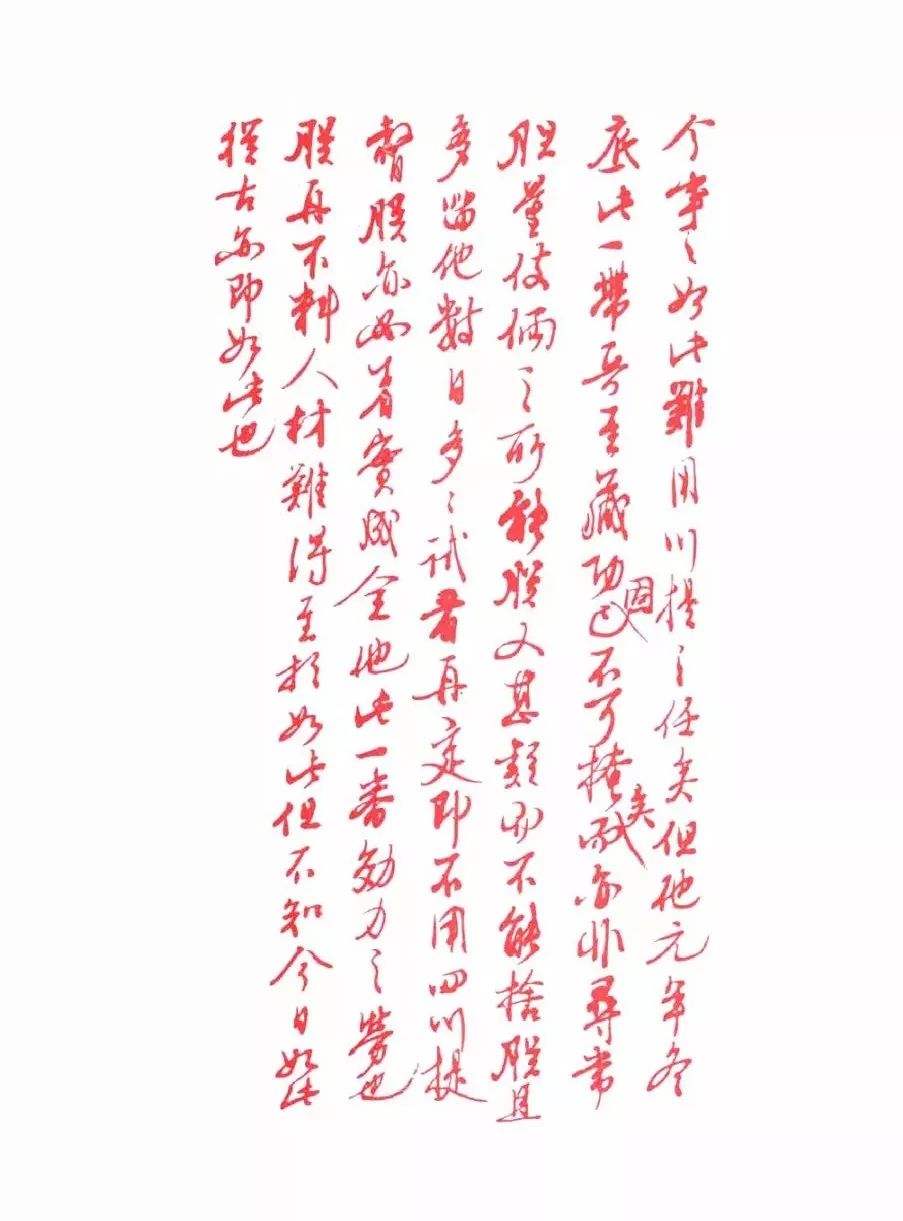 今事之如此難用川提之任矣但他元年冬
底此一帶兵至藏功固不可掩矣亦非尋常
胆量伎俩之所能朕又甚類而不能捨朕且
多留他數日多之試看再定即不用四川提
督朕亦必着實成全他此一番効力之勞也
朕再不料人材難得至於如此但不知今日如此
從古亦即如此也